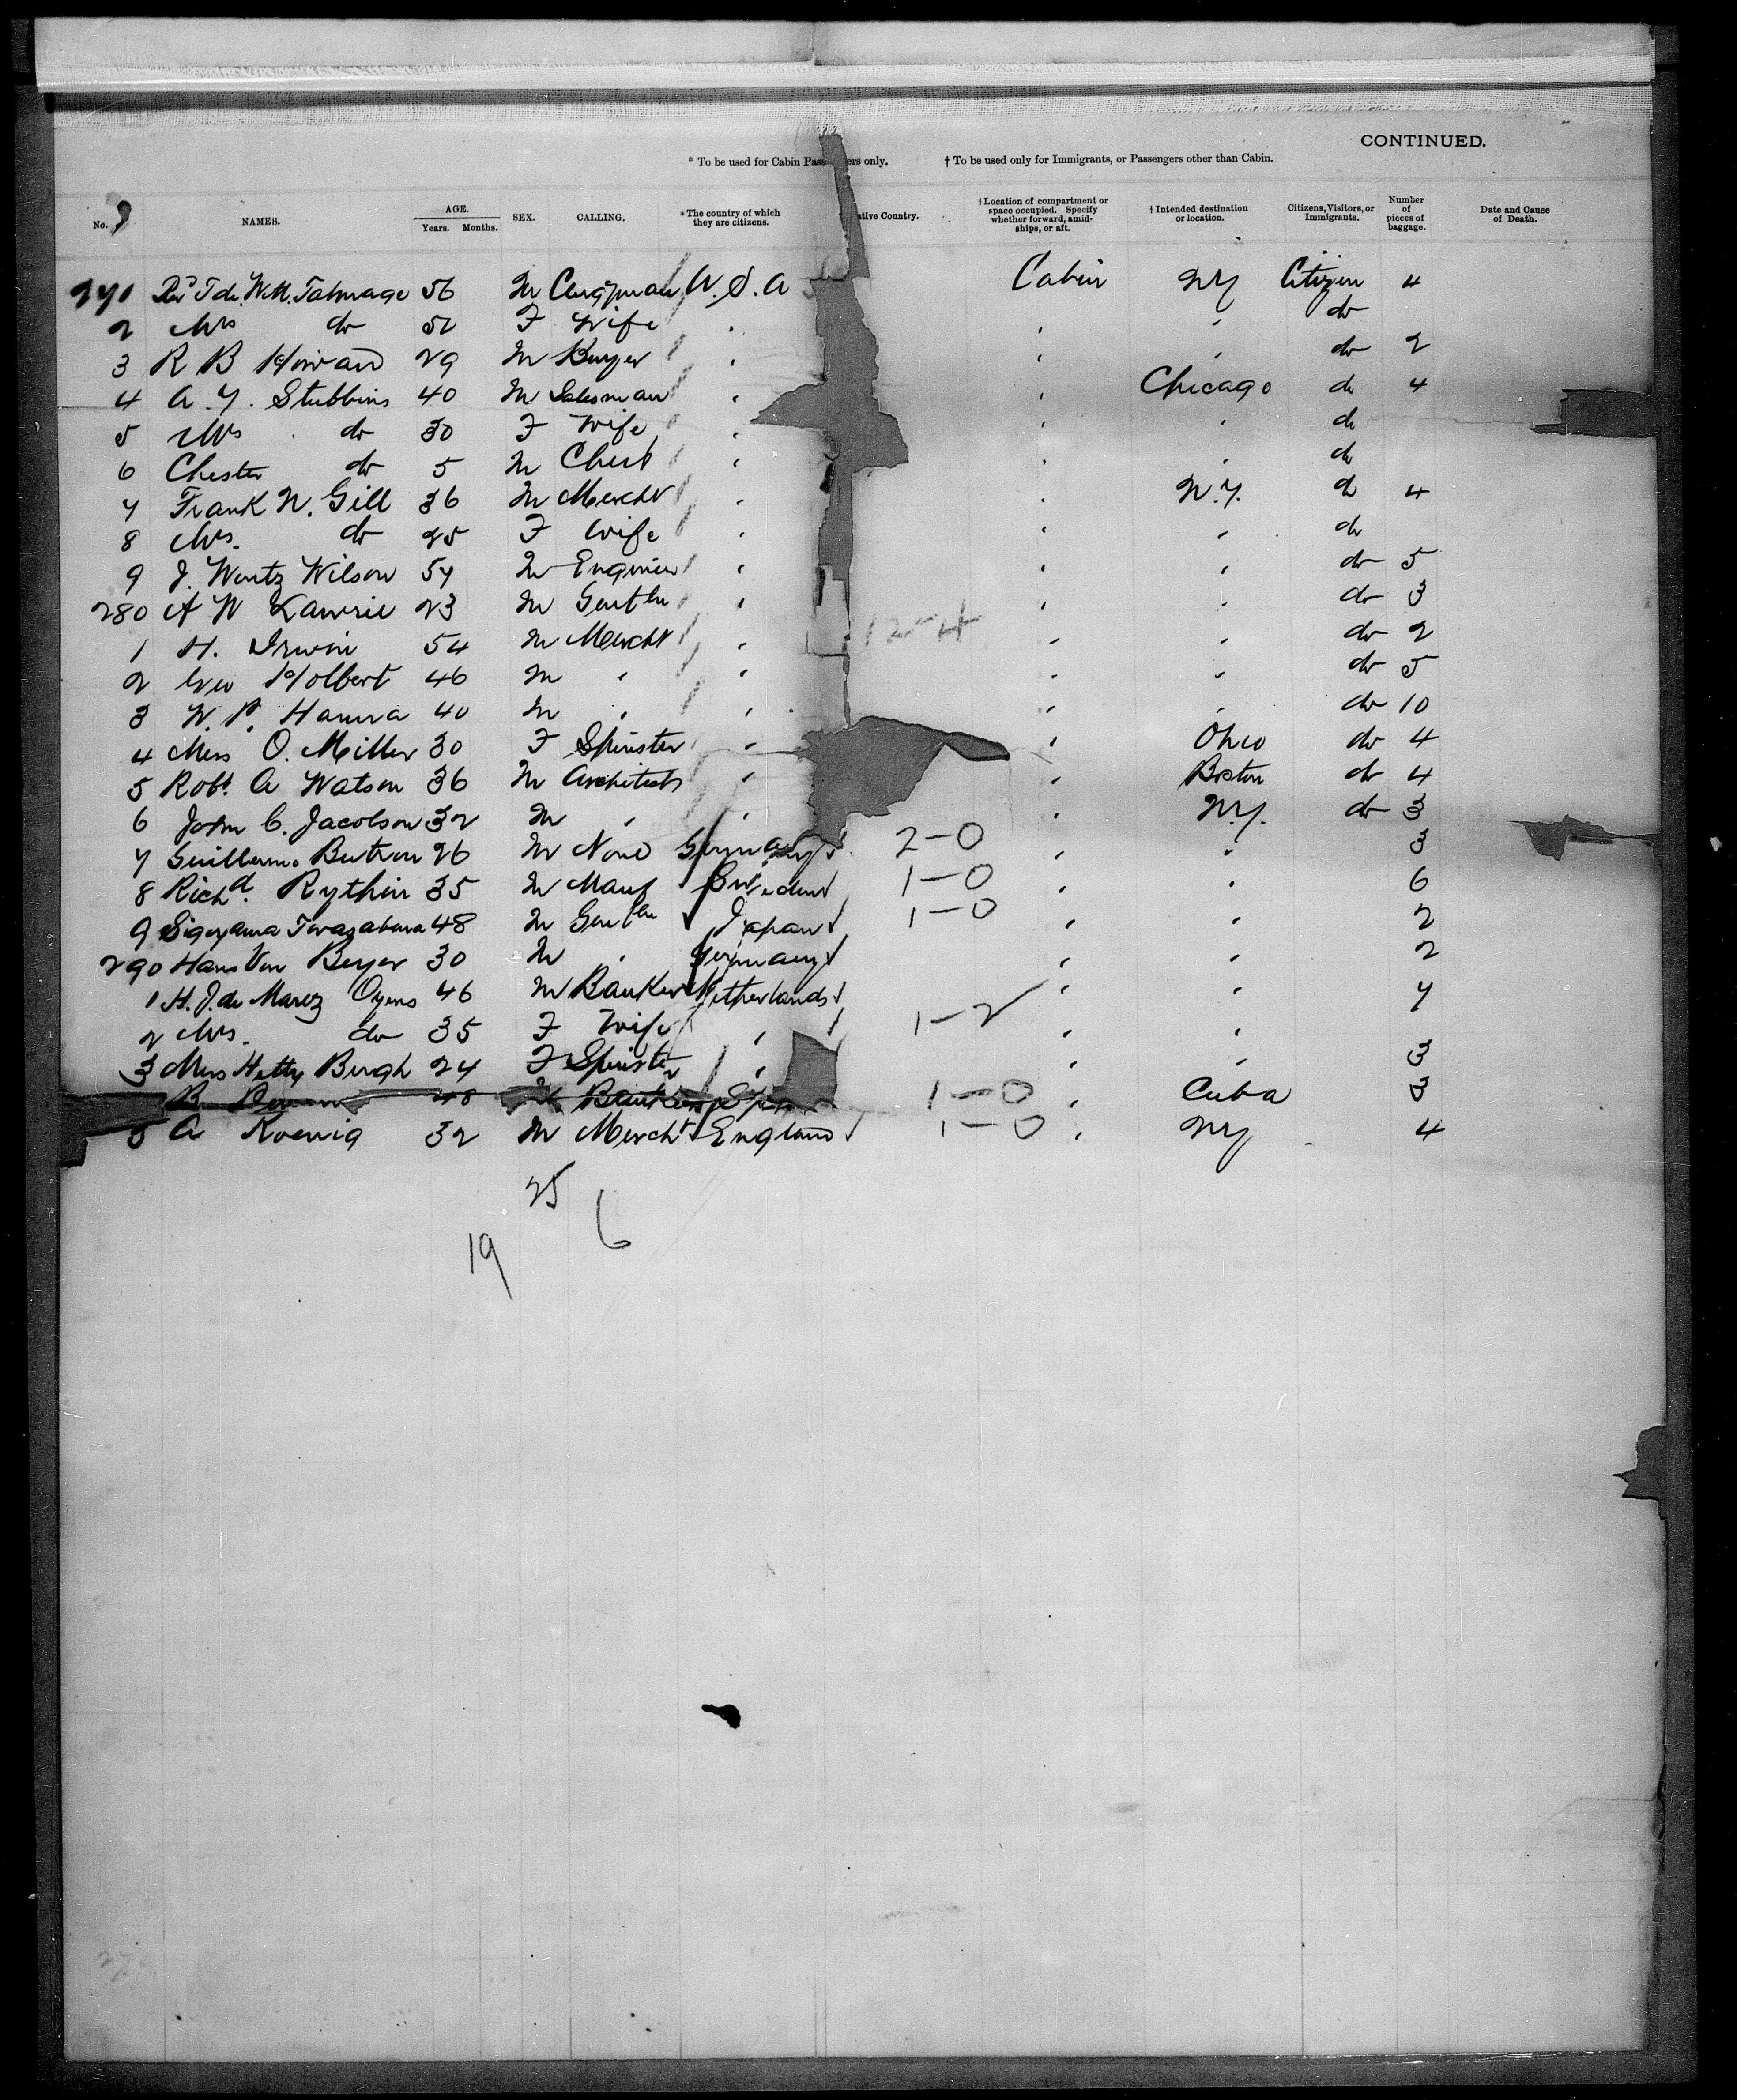 CONTINUED.
* To be used for Cabin Pass ers only. † To be used only for Immigrants, or Passengers other than Cabin.
No. NAMES. AGE. Years. Months. SEX. CALLING. *The country of which they are citizens. ative Country. †Location of compartment or space occupied. Specify whether forward, amidships, or aft. †Intended destination or location. Citizens, Visitors, or Immigrants. Number of pieces of baggage. Date and Cause of Death.
271 Revd T de Witt Talmage 56 M Clergyman U.S.A Cabin NY Citizen 4
2 Mrs do 52 F Wife " " " do
3 R B Howard 29 M Buyer " " " do 2
4 A. Y. Stubbins 40 M Salesman " " Chicago do 4
5 Mrs do 30 F Wife " " " do
6 Chester do 5 M " " " do
7 Frank N. Gill 36 M Mercht " " N.Y. do 4
8 Mrs. do 25 F Wife " " " do
9 J. Wentz Wilson 57 M Engineer " " " do 5
280 A W Lawrie 23 M Gentln " " " do 3
1 H. Irwin 54 M Mercht " 12-4 " " do 2
2 Geo Holbert 46 M " " " " do 5
3 W. P. Hanna 40 M " " " " do 10
4 Miss O. Miller 30 F Spinster " " Ohio do 4
5 Robt. A Watson 36 M Architect " " Boston do 4
6 John C. Jacolson 32 M " " " N.Y. do 3
7 Guillermo Butron 26 M None Germany 2-0 " " 3
8 Richd. Rythin 35 M Manf Sweden 1-0 " " 6
9 48 M Gentln Japan 1-0 " " 2
290 Hans Von Beyer 30 M " Germany " " 2
1 H. J. de Marez Oyens 46 M Banker Netherlands " " 7
2 Mrs. do 35 F Wife " 1-2 " "
3 Miss Hetty Bergh 24 F Spinster " " " 3
B 48 M Banker 1-0 " Cuba 3
5 A Koenig 32 M Mercht England 1-0 " NY 4
25
6
19